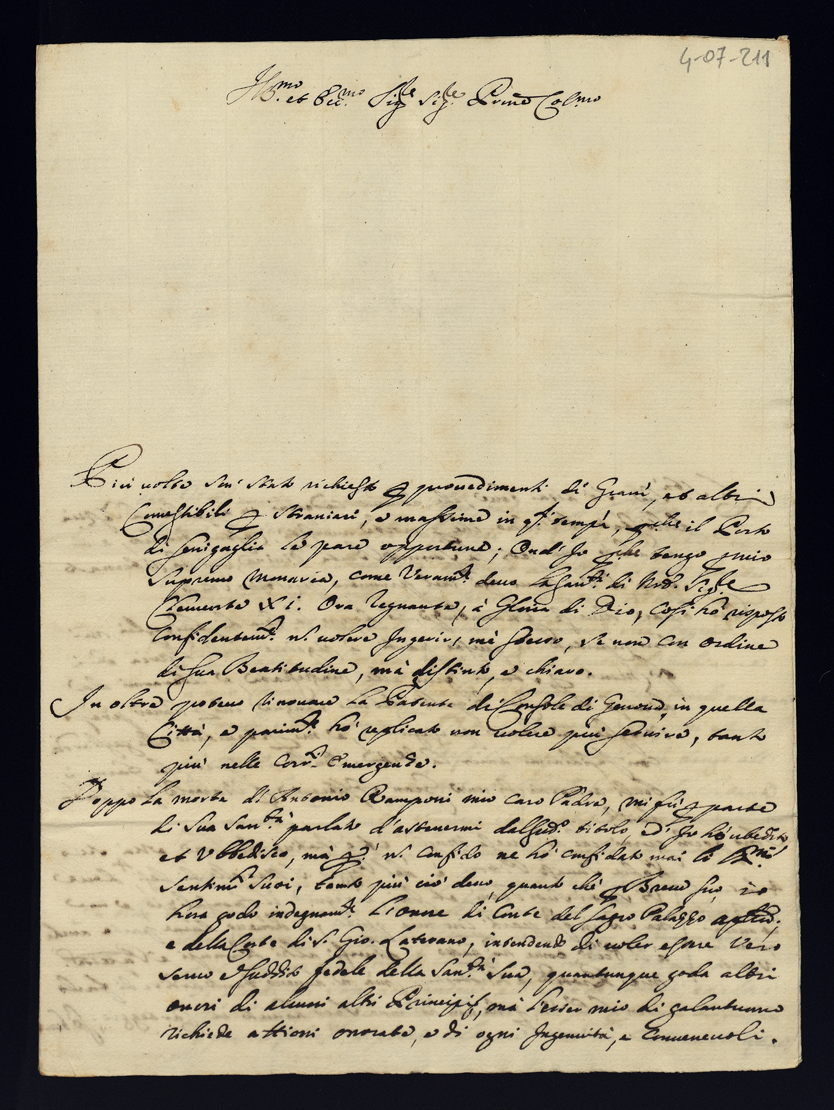 4-07-211
Ill.mo et Ecc.mo Sig.re Sig.re Prone Col.mo
Più volte son stato richiesto p provedimenti di Grani, et altri
Comestibili p stranieri, e massime in q.ti tempi, p che il Porto
di Senigaglia le pare opportuno; Ond' Io p che tengo p mio
Supremo Monarca, come Veram.te devo la San.tà di Nro. Sig.re
Clemente XI. Ora regnante, à Gloria di Dio, così hò risposto
Confidentem.te n. volere Ingerir, mà stesso, se non con ordine
di Sua Beatitudine, mà distinto, e chiaro.
In oltre potevo rinovare la Patente di Console di Genova, in quella
Città, e parim.te hò replicato non volere più servire, tanto
più nelle corr.ti Emergenze.
Doppo la morte di Antonio Ramponi mio caro Padre, mi fù p parte
di Sua San.tà parlato d'astenermi dal sud.o titolo, ed Io hò ubedito,
et Ubbedisco, mà n. confido ne hò confidato mai le
Sentim.ti Suoi, tanto più ciò devo, quanto chè p Breve suo, io
hora godo indegnam.te l'onore di Conte del Sagro Palazzo
e della Corte di S. Gio. Laterano, intendendo di voler essere Vero
servo e suddito fedele della San.tà Sua, quantunque goda altri
onori di alcuni altri Principi, mà l'esser mio di galantuomo
richiede attioni onorate, e di ogni Ingenuità, e Convenevoli.